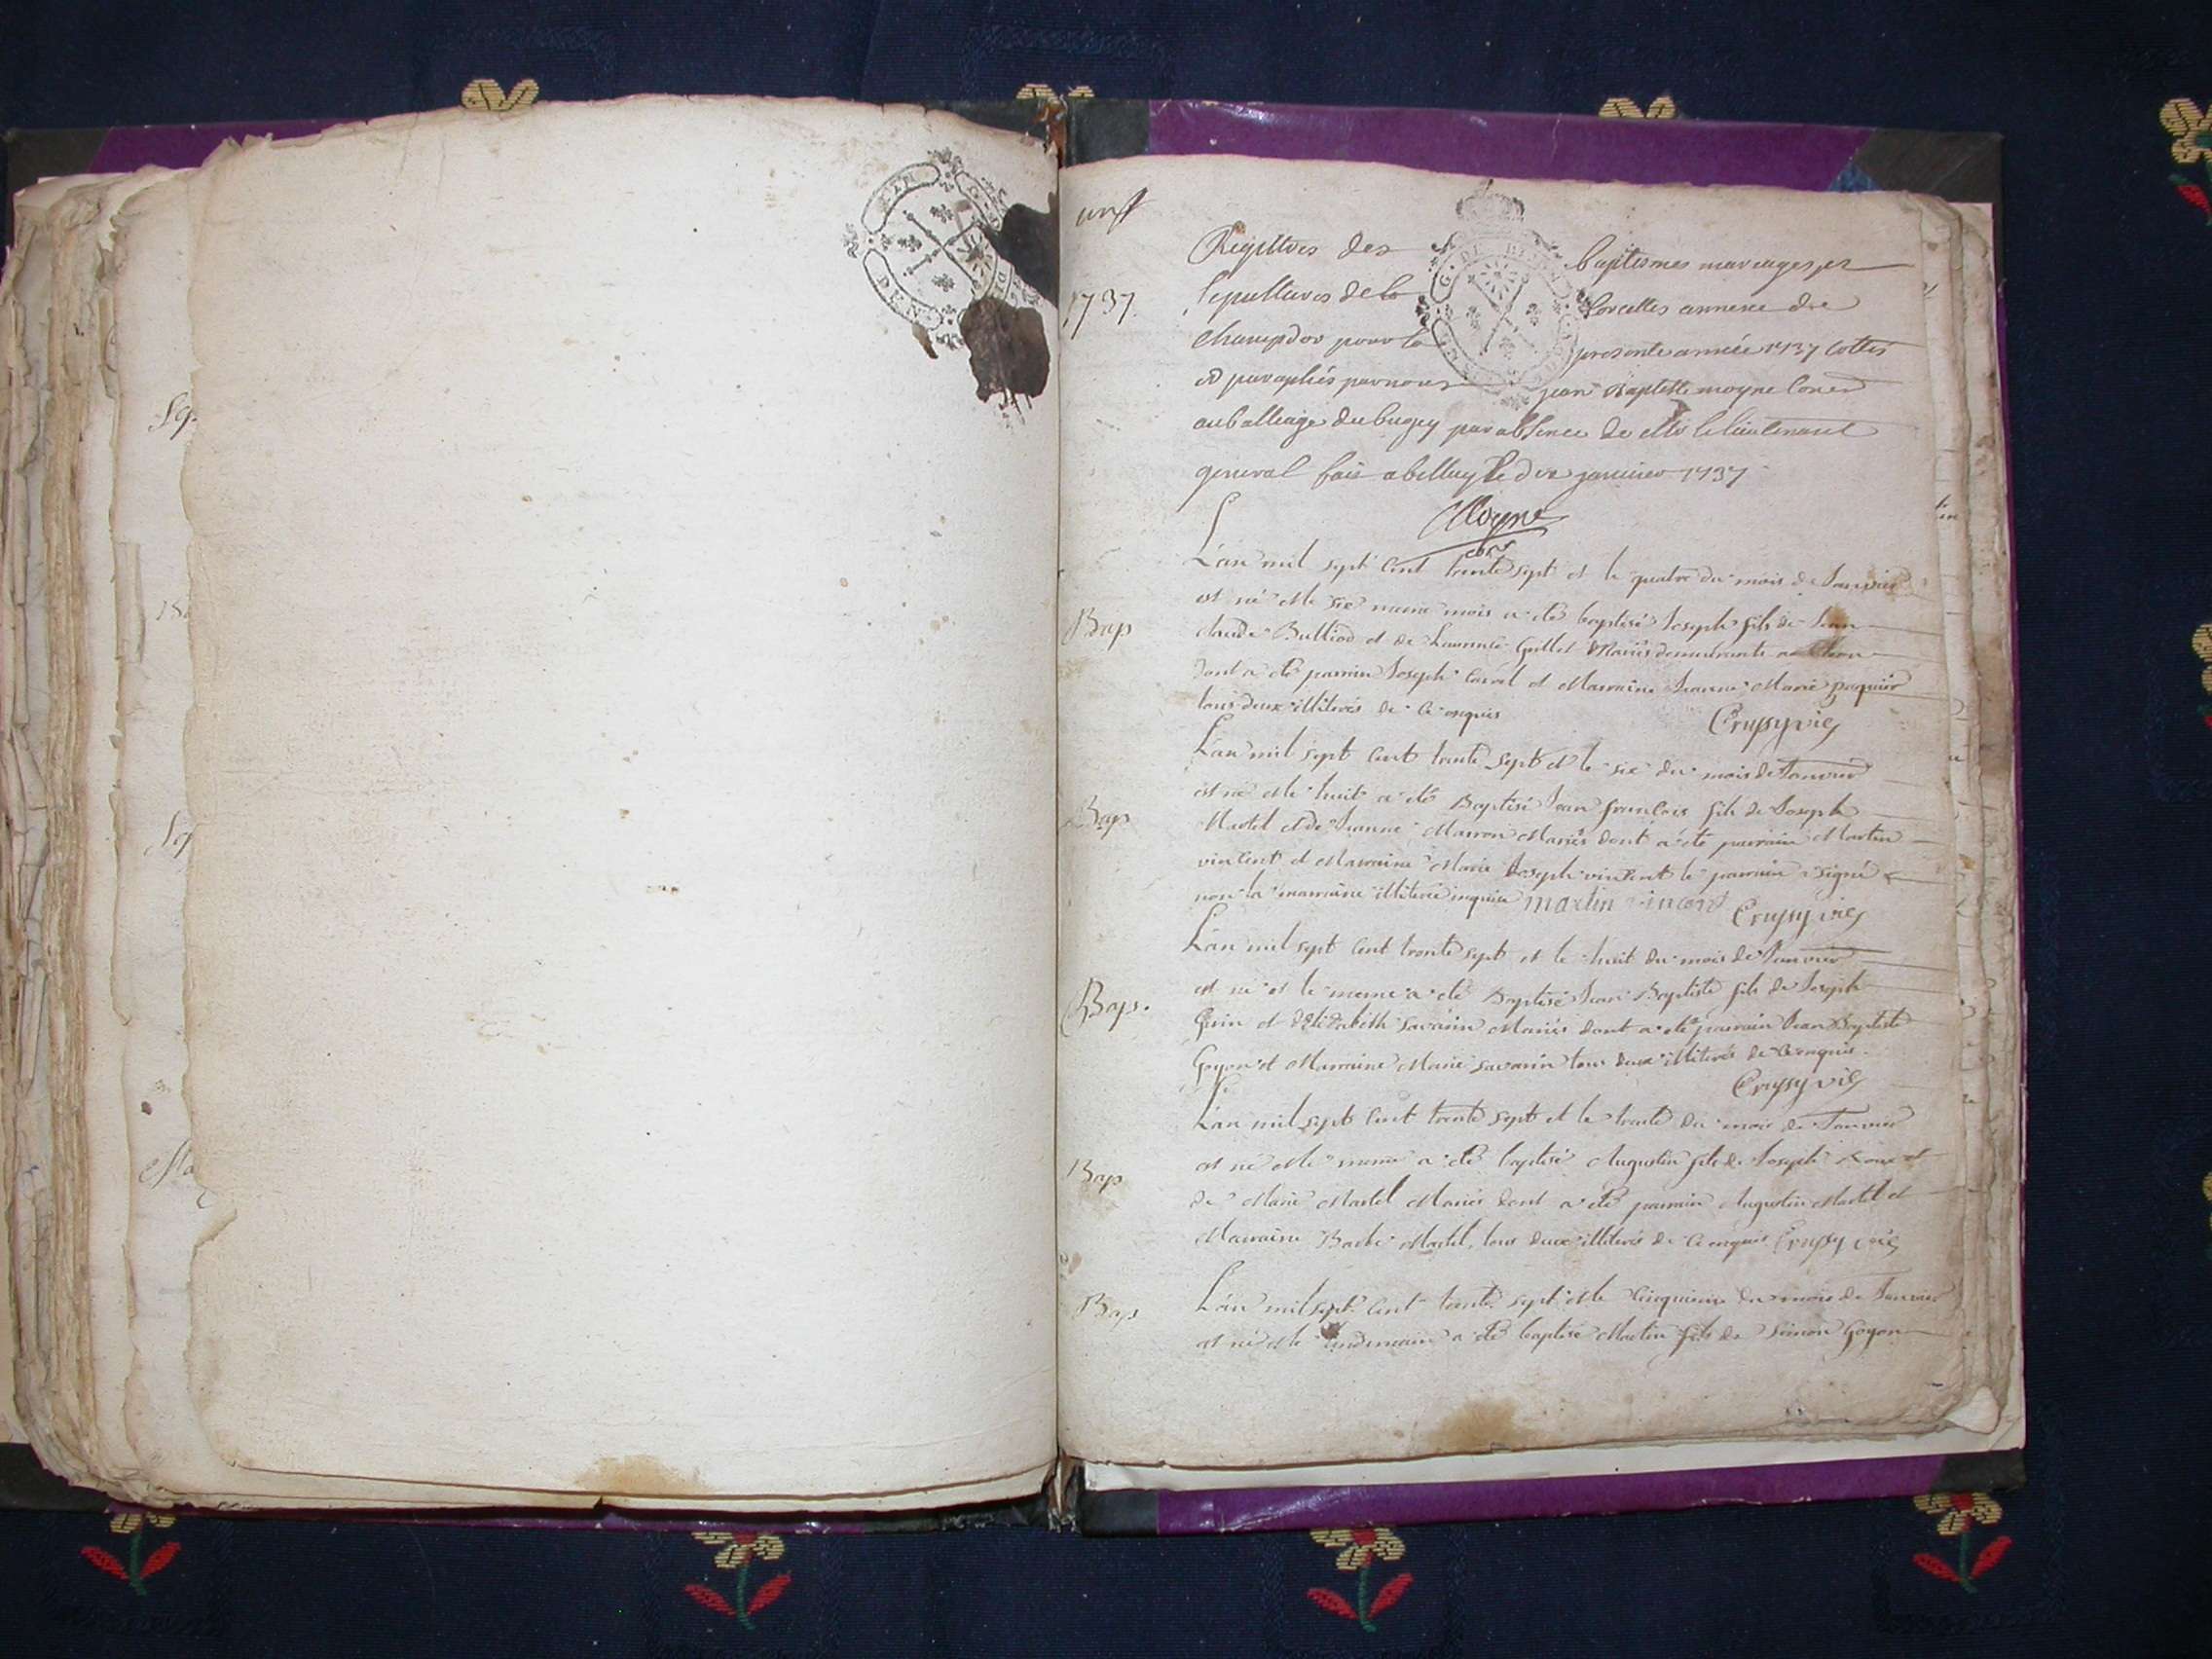 Registres des baptismes mariages et
1737
Sepultures de la Corcelles annexe de
Champdor pour la presente année 1737 cottés
et paraphés par nous jean Baptiste moyne Coner
au balliage du bugey par absence de Mr le lieutenant
general fait a belley le dix janvier 1737
Moyne
coner
L'an mil sept cent trente sept et le quatre du mois de Janvier
est né et le six meme mois a eté baptisé Joseph fils de Jean
Bap
claude Bulliod et de Laurence Gillet Mariés demeurants a
dont a eté parrain Joseph Carrel et Marraine Jeanne Marie paquier
tous deux illiterés de ce enquis
Crussy vic
L'an mil sept cent trente sept et le six du mois de Janvier
est né et le huit a eté Baptisé Jean françois fils de Joseph
Bap
Martel et de Jeanne Marron Mariés dont a eté parrain Martin
vincent et Marraine Marie Joseph vincent le parrain a signé et
non la marraine illiterée enquise martin vincent Crussy vic
L'an mil sept cent trente sept et le huit du mois de Janvier
est né et le meme a eté Baptisé Jean Baptiste fils de Joseph
Bap.
Guin et d'Elizabeth Savarin Mariés dont a eté parrain Jean Baptiste
Goyon et Marraine Marie Savarin tous deux illiterés de ce enquis.
Crussy vic
L'an mil sept cent trente sept et le trente du mois de Janvier
est né et le meme a eté baptisé Augustin fils de Joseph Roux et
Bap
de Marie Martel Mariés dont a eté parrain Augustin Martel et
Marraine Barbe Martel, tous deux illiterés de ce enquis Crussy vic
Bap
L'an mil sept cent trente sept et le cinquieme du mois de Janvier
est né et le lendemain a eté baptisé Martin fils de Simon Goyon